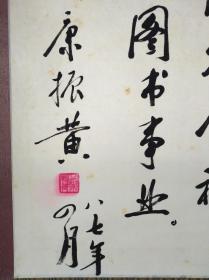 图书事业。
康振黄
八七年
四月